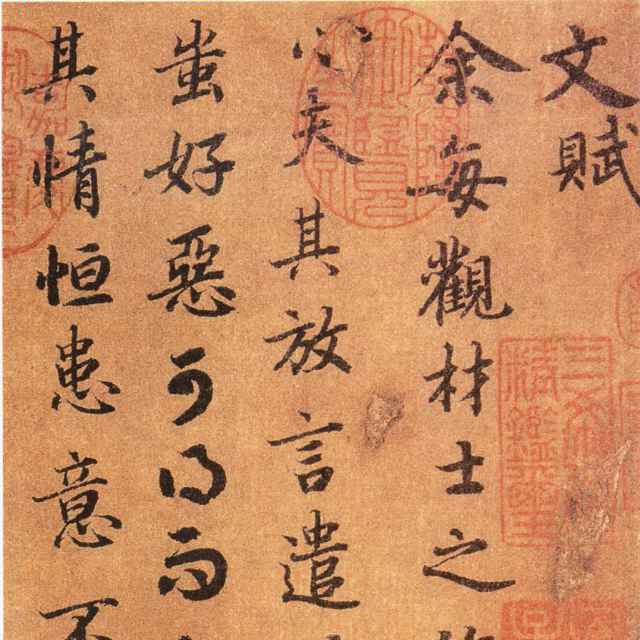 文賦
余每觀材士之
心夫其放言遣
蚩好惡可得而
其情恒患意不